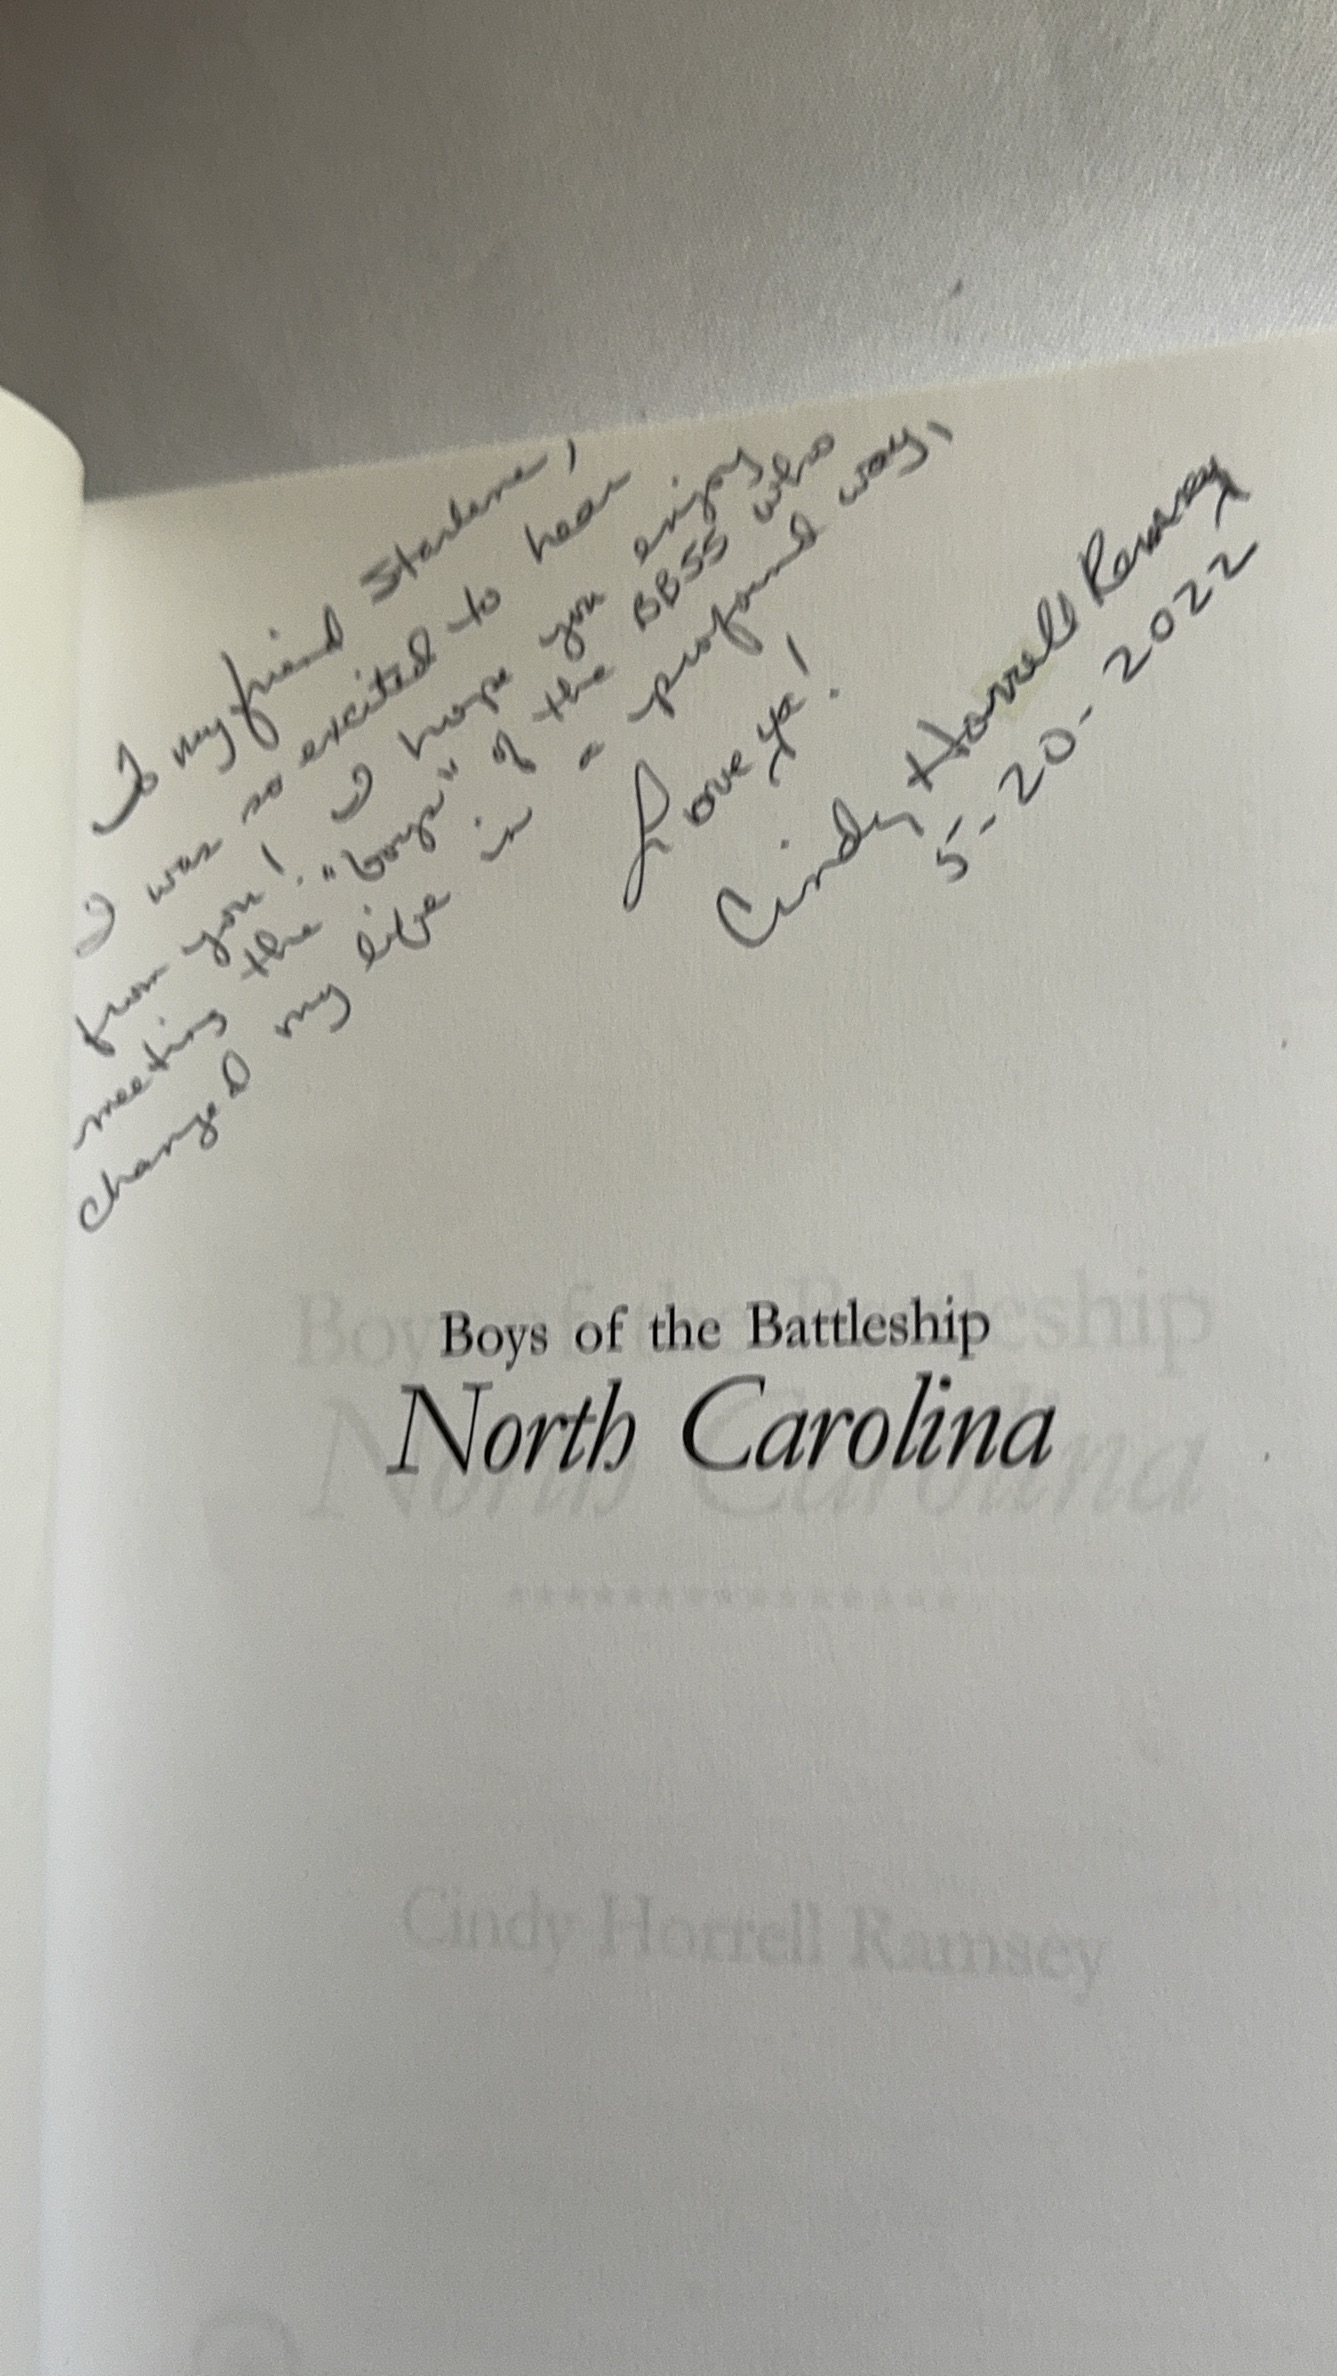 To my friend Starlene,
I was so excited to hear
from you! I hope you enjoy
meeting the "boys" of the BB55 who
changed my life in a profound way,
Love ya!
Cindy Horrell Ramsey
5-20-2022
Boys of the Battleship
North Carolina
Cindy Horrell Ramsey